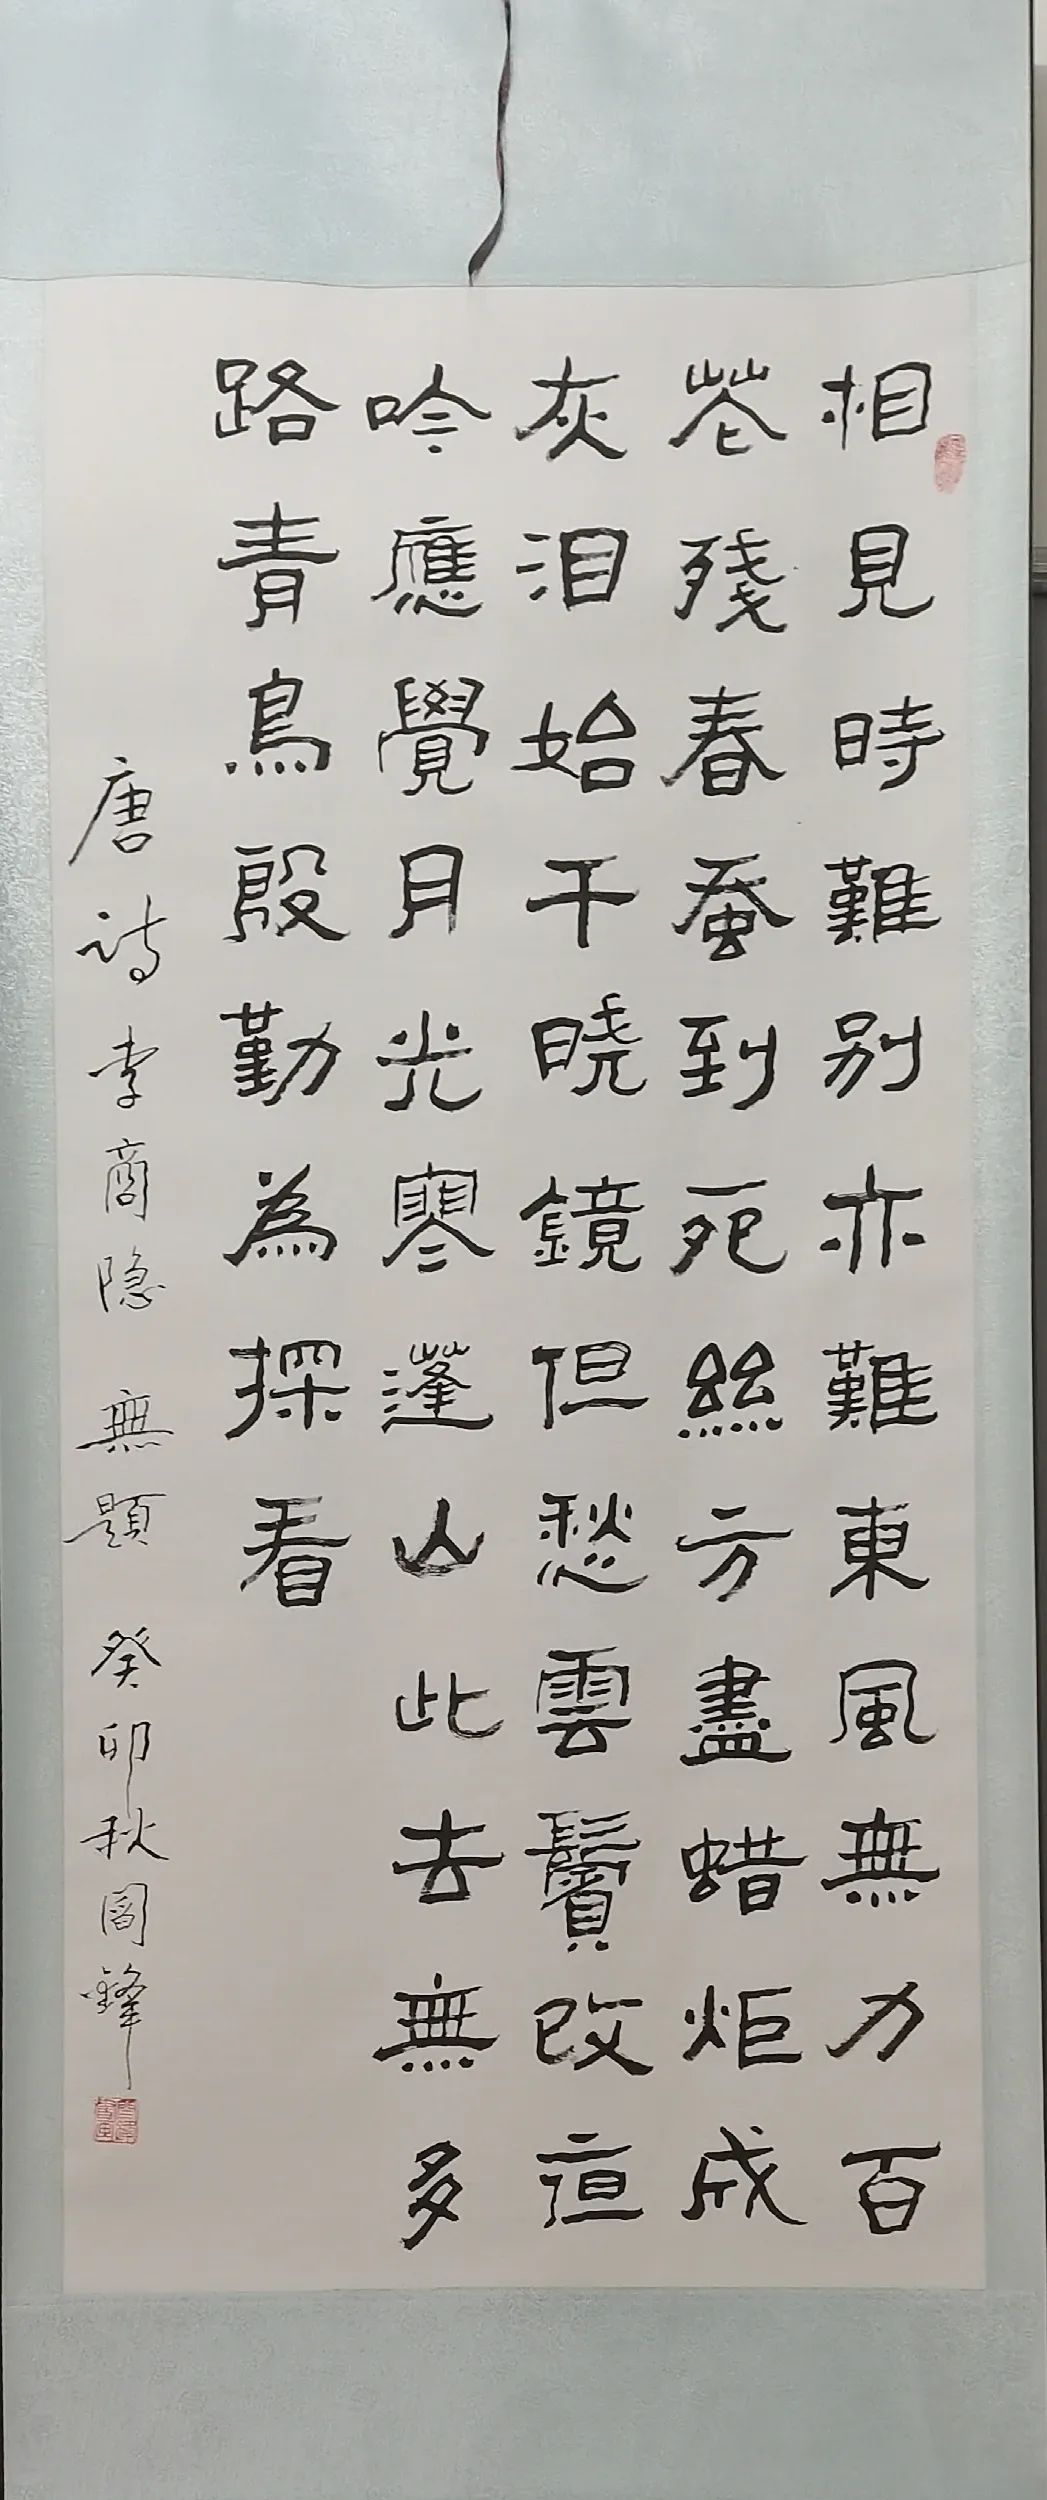 相見時難别亦難東風無力百
花殘春蚕到死絲方盡蜡炬成
灰泪始干晓鏡但愁雲鬢改夜
吟應覺月光寒蓬山此去無多
路青鳥殷勤為探看
唐诗李商隐 無題 癸卯秋閻鋒